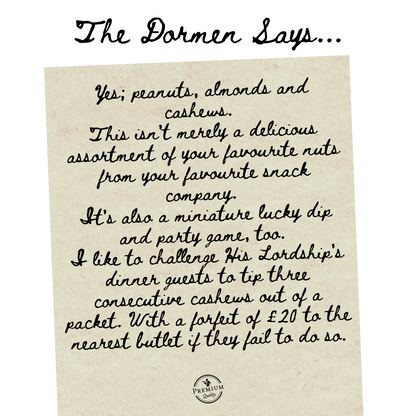 The Dormen Says...
Yes; peanuts, almonds and
cashews.
This isn't merely a delicious
assortment of your favourite nuts
from your favourite snack
company.
It's also a miniature lucky dip
and party game, too.
I like to challenge His Lordship's
dinner guests to tip three
consecutive cashews out of a
packet. With a forfeit of £20 to the
nearest butlet if they fail to do so.
PREMIUM
Quality